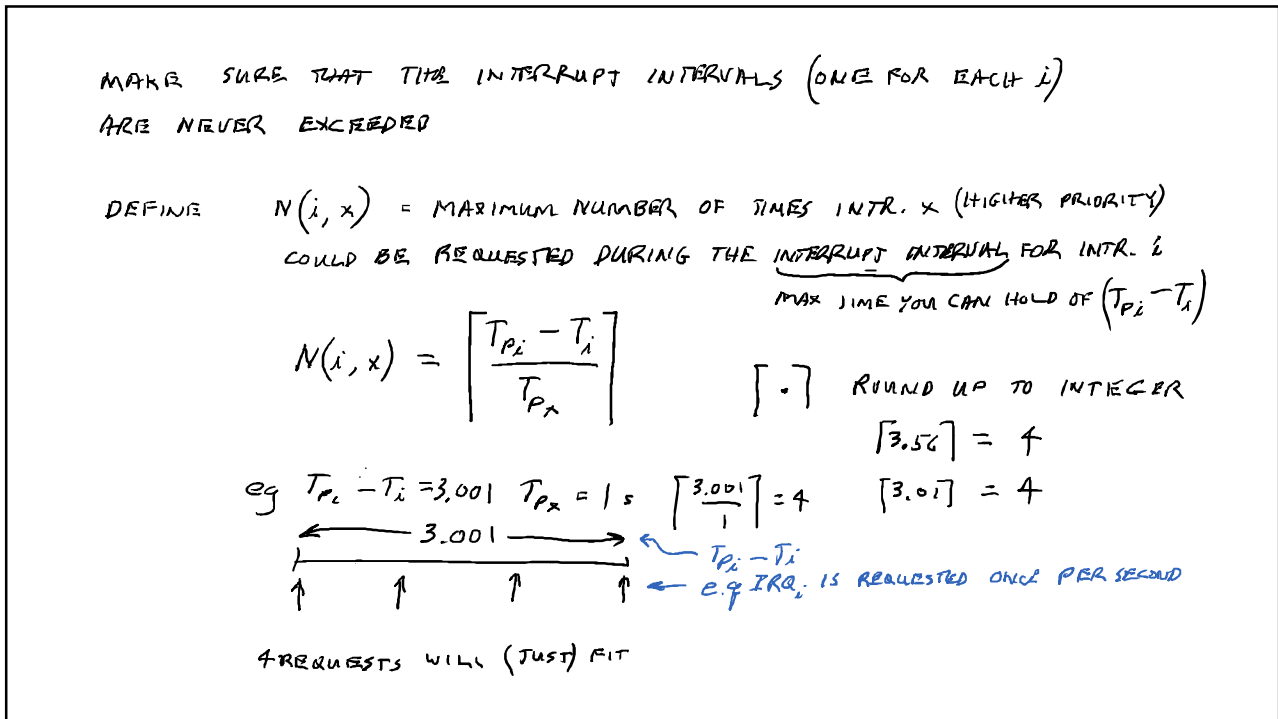 MAKE SURE THAT THE INTERRUPT INTERVALS (ONE FOR EACH i)
ARE NEVER EXCEEDED
DEFINE N(i, x) = MAXIMUM NUMBER OF TIMES INTR. x (HIGHER PRIORITY)
COULD BE REQUESTED DURING THE INTERRUPT INTERVAL FOR INTR. i
MAX TIME YOU CAN HOLD OF (T_{Pi} − T_i)
N(i, x) = ⌈(T_{Pi} − T_i) / T_{Px}⌉
⌈ · ⌉ ROUND UP TO INTEGER
⌈3.56⌉ = 4
eg T_{Pi} − T_i = 3.001 T_{Px} = 1 s ⌈3.001 / 1⌉ = 4 ⌈3.01⌉ = 4
3.001
T_{Pi} − T_i
e.g IRQ_i IS REQUESTED ONCE PER SECOND
4 REQUESTS WILL (JUST) FIT